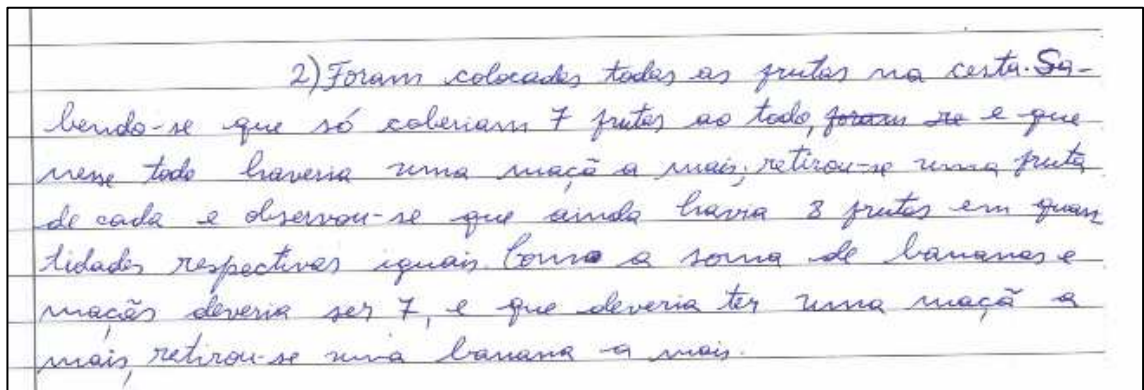 2) Foram colocadas todas as frutas na cesta. Sa-
bendo-se que só caberiam 7 frutas ao todo, foram re e que
nesse todo haveria uma maçã a mais; retirou-se uma fruta
de cada e observou-se que ainda havia 8 frutas em quan
tidades respectivas iguais. Como a soma de bananas e
maçãs deveria ser 7, e que deveria ter uma maçã a
mais, retirou-se uma banana a mais.